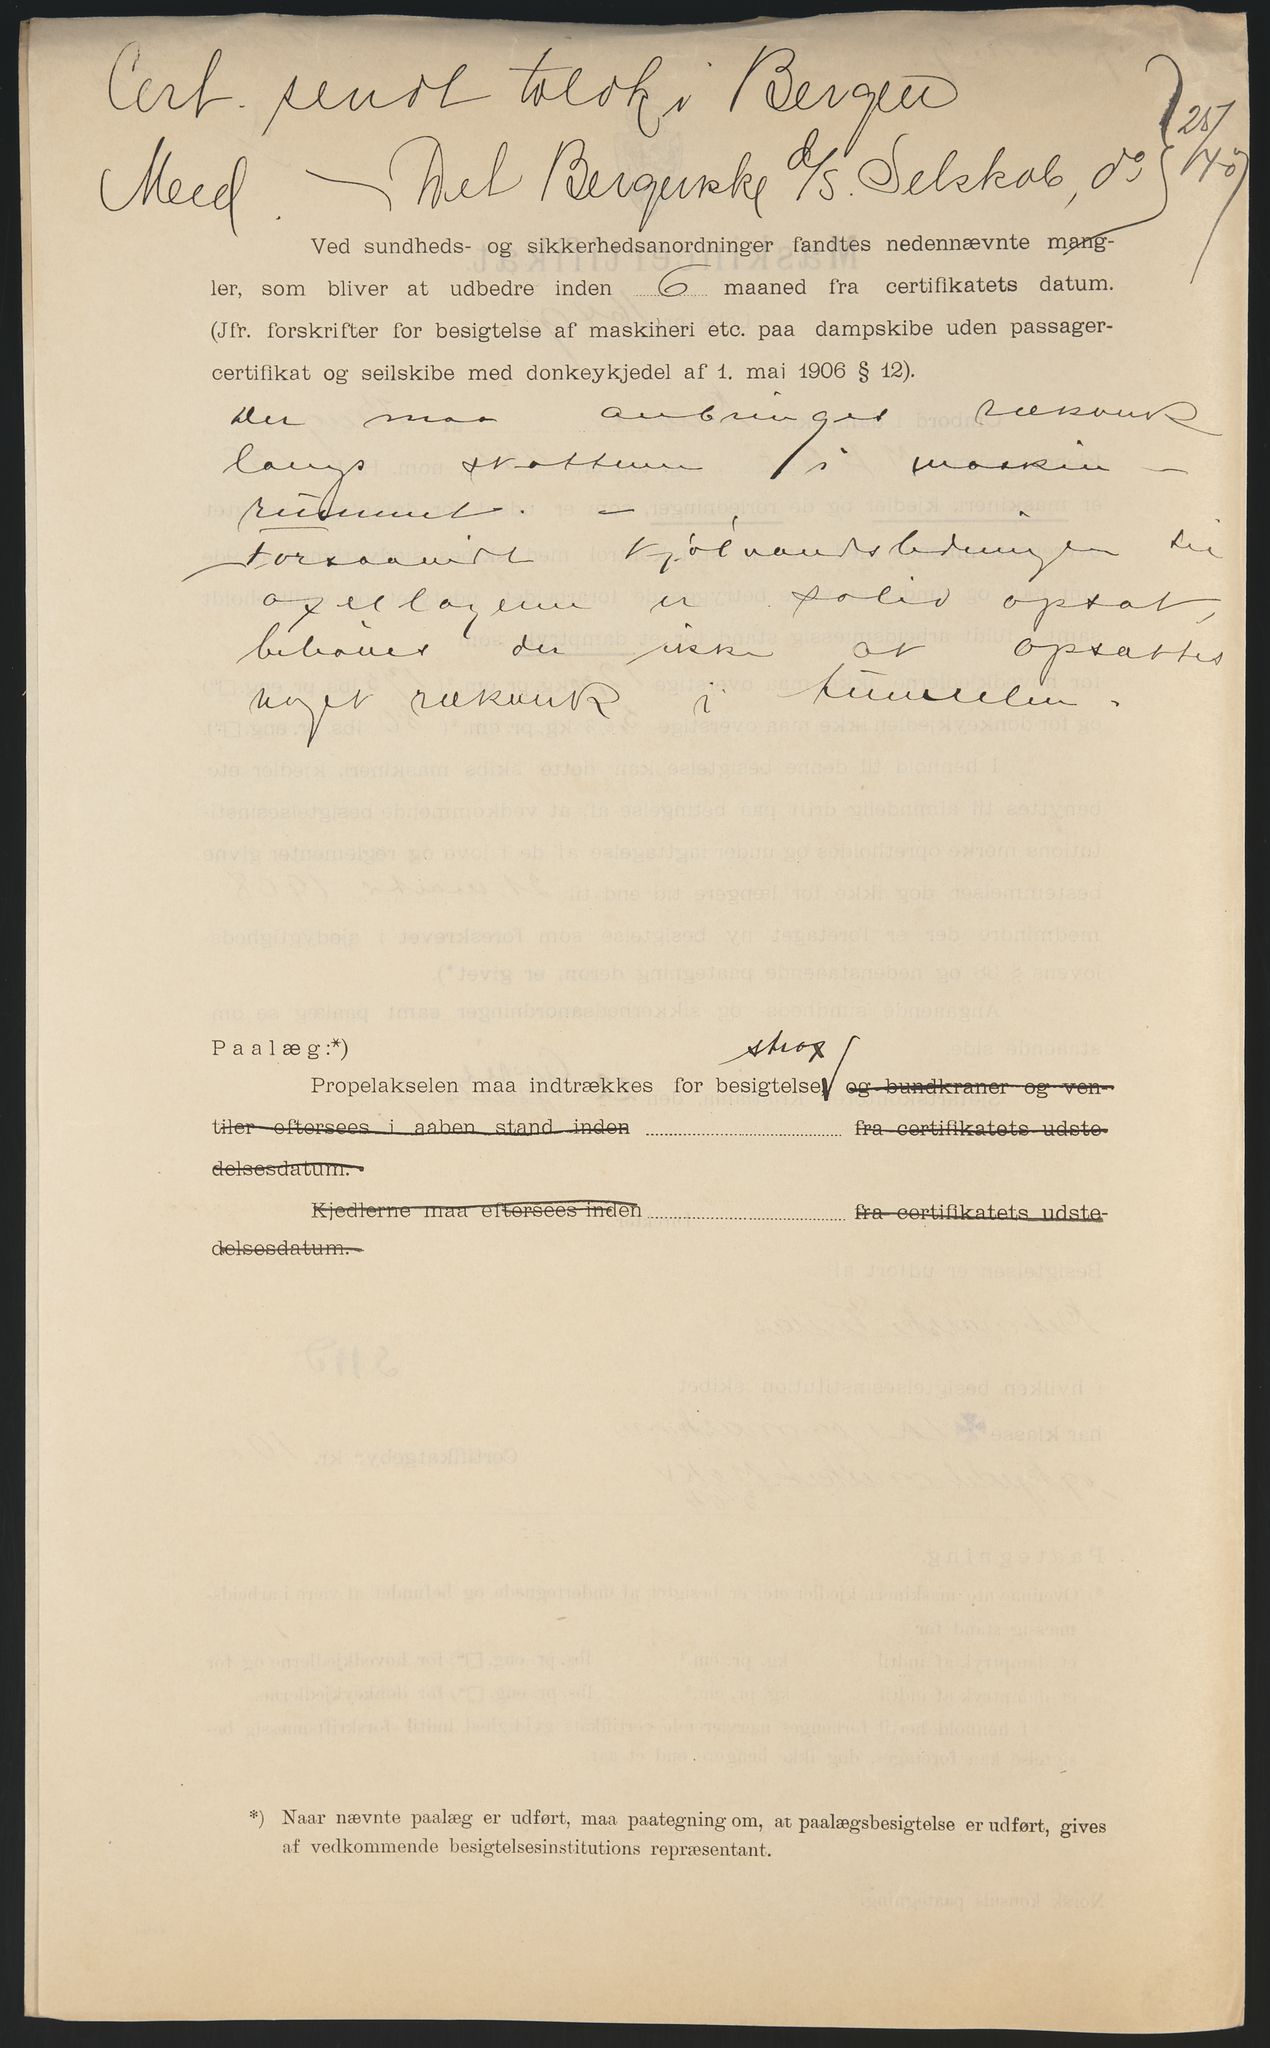 Cert. sendt toldk i Bergen
Med. — Det Bergenske d/s. Selskab, do } 25/10 07
Ved sundheds- og sikkerhedsanordninger fandtes nedennævnte mang-
ler, som bliver at udbedre inden 6 maaned fra certifikatets datum.
(Jfr. forskrifter for besigtelse af maskineri etc. paa dampskibe uden passager-
certifikat og seilskibe med donkeykjedel af 1. mai 1906 § 12).
Der maa anbringes rækverk
langs skottene i maskin-
rummet. —
Forsaavidt kjølvandsledningen til
axellagerne er solid opsat,
behøves der ikke at opsættes
noget rækverk i tunnelen.
Paalæg:*)
strax
Propelakselen maa indtrækkes for besigtelse og bundkraner og ven-
tiler eftersees i aaben stand inden fra certifikatets udste-
delsesdatum.
Kjedlerne maa eftersees inden fra certifikatets udste-
delsesdatum.
*) Naar nævnte paalæg er udført, maa paategning om, at paalægsbesigtelse er udført, gives
af vedkommende besigtelsesinstitutions repræsentant.